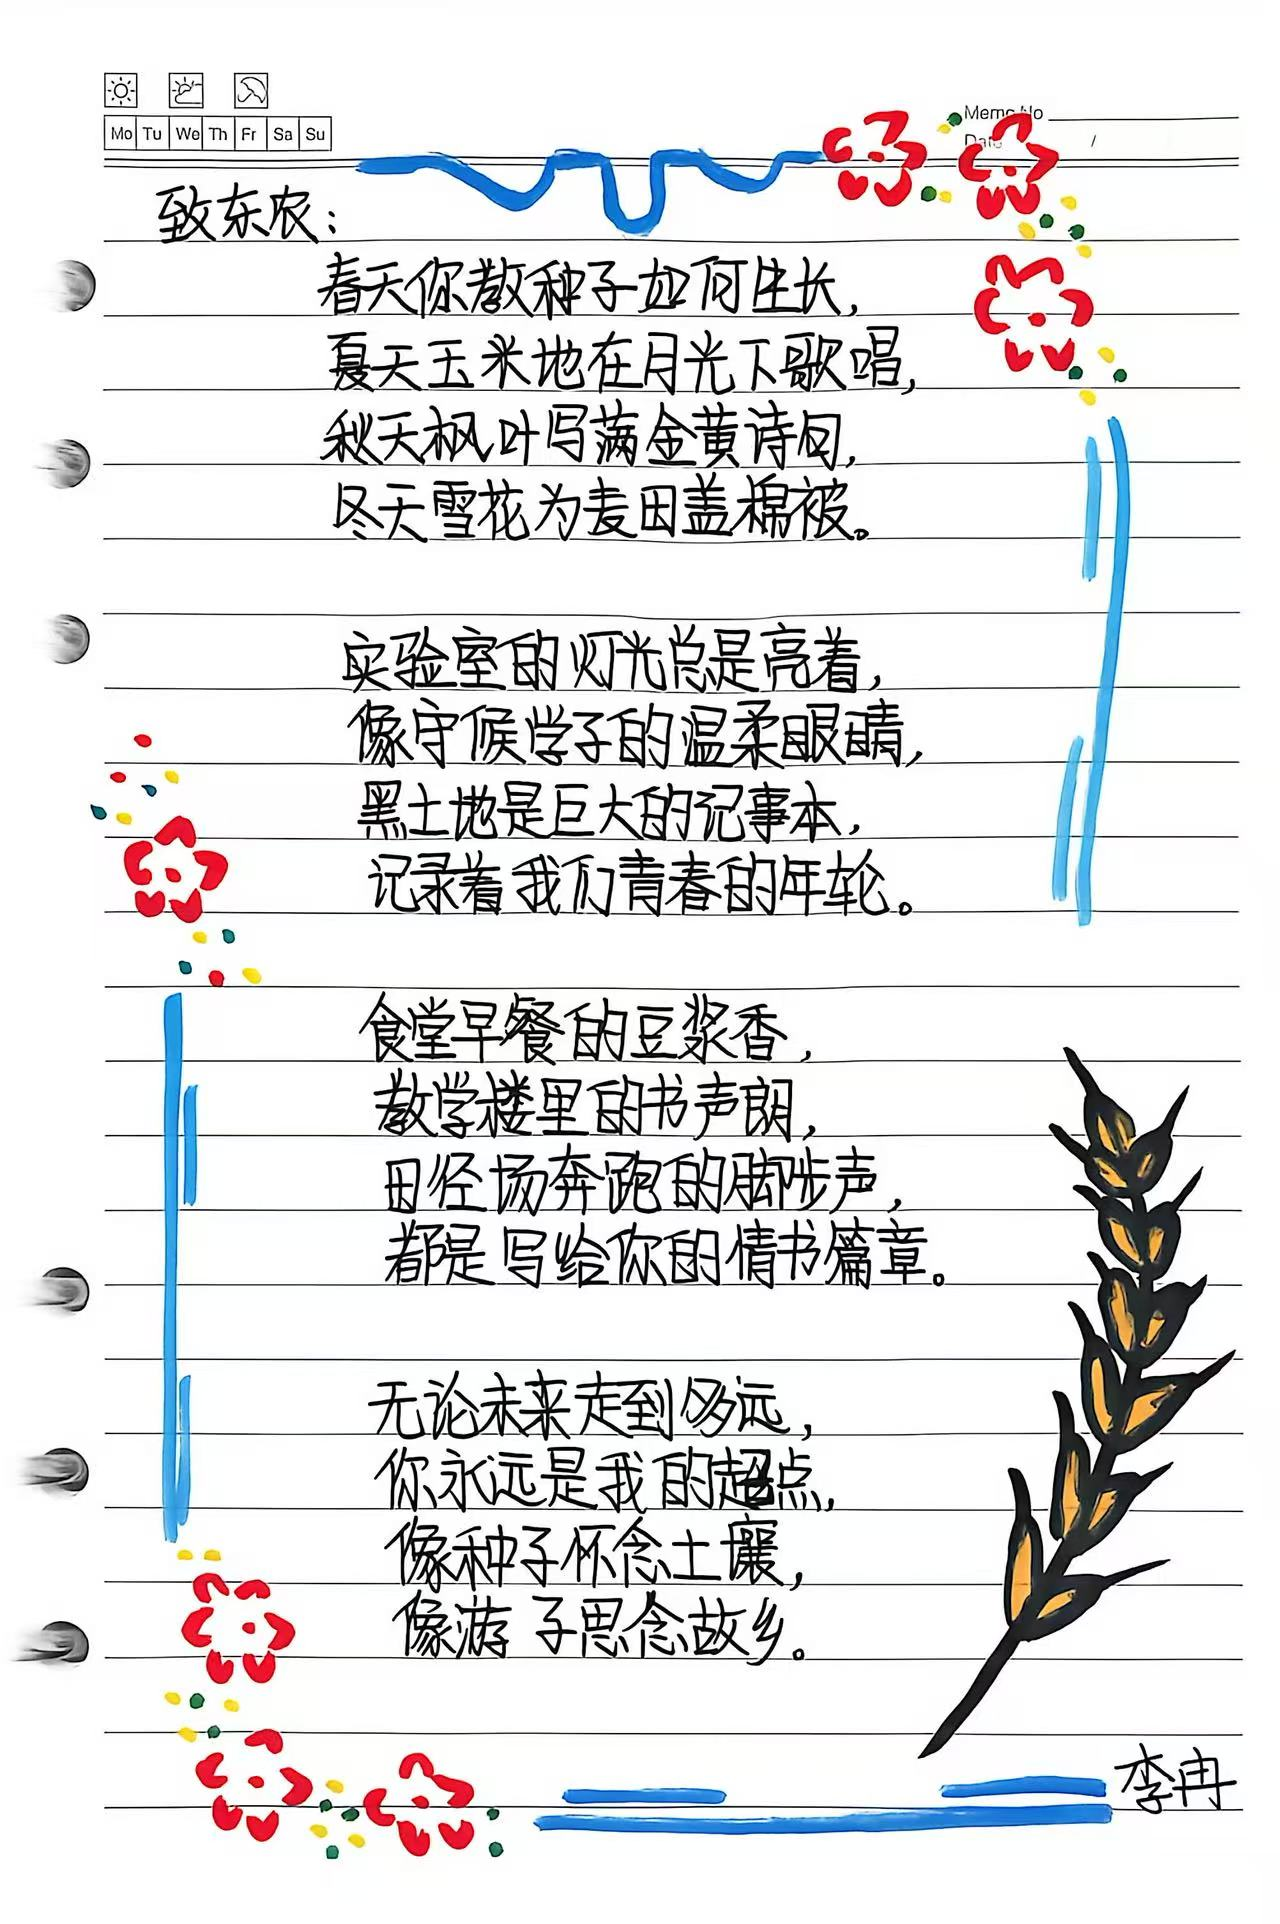 Mo Tu We Th Fr Sa Su
Memo No
Date /
致东农：
春天你教种子如何生长，
夏天玉米地在月光下歌唱，
秋天枫叶写满金黄诗句，
冬天雪花为麦田盖棉被。
实验室的灯光总是亮着，
像守候学子的温柔眼睛，
黑土地是巨大的记事本，
记录着我们青春的年轮。
食堂早餐的豆浆香，
教学楼里的书声朗，
田径场奔跑的脚步声，
都是写给你的情书篇章。
无论未来走到多远，
你永远是我的起点，
像种子怀念土壤，
像游子思念故乡。
李冉